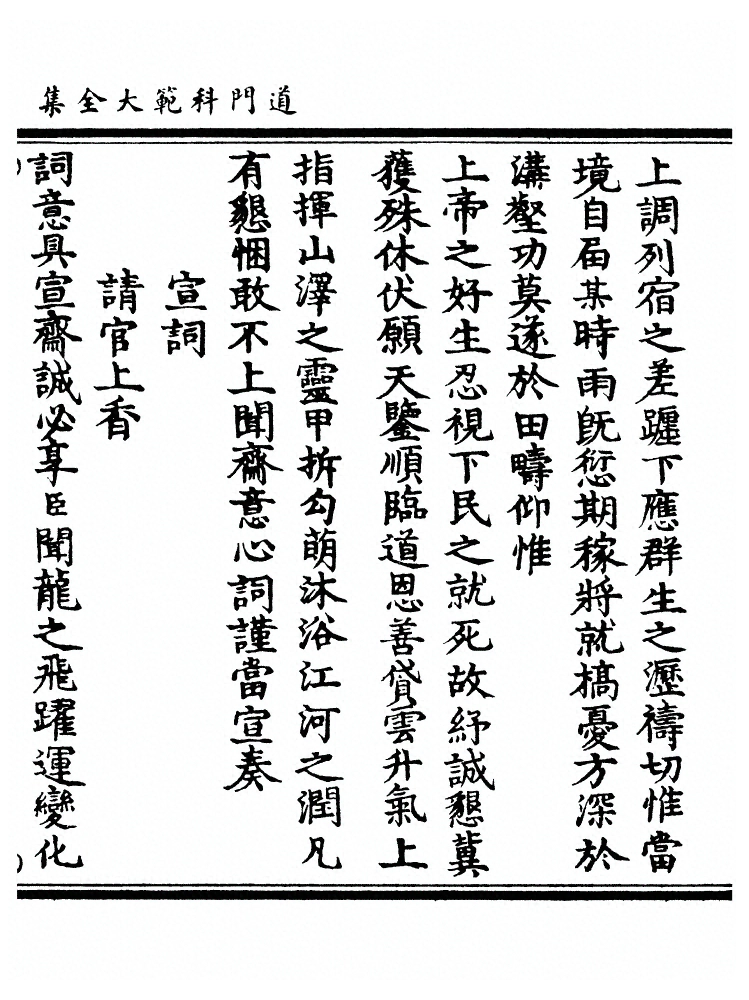 道門科範大全集
上調列宿之差躔下應群生之瀝禱切惟當
境自届某時雨既愆期稼將就槁憂方深於
溝壑功莫遂於田疇仰惟
上帝之好生忍視下民之就死故紓誠懇冀
獲殊休伏願天鑒順臨道恩善貸雲升氣上
指揮山澤之靈甲拆勾萌沐浴江河之潤凡
有懇悃敢不上聞齋意心詞謹當宣奏
宣詞
請官上香
詞意具宣齋誠必享臣聞龍之飛躍運變化